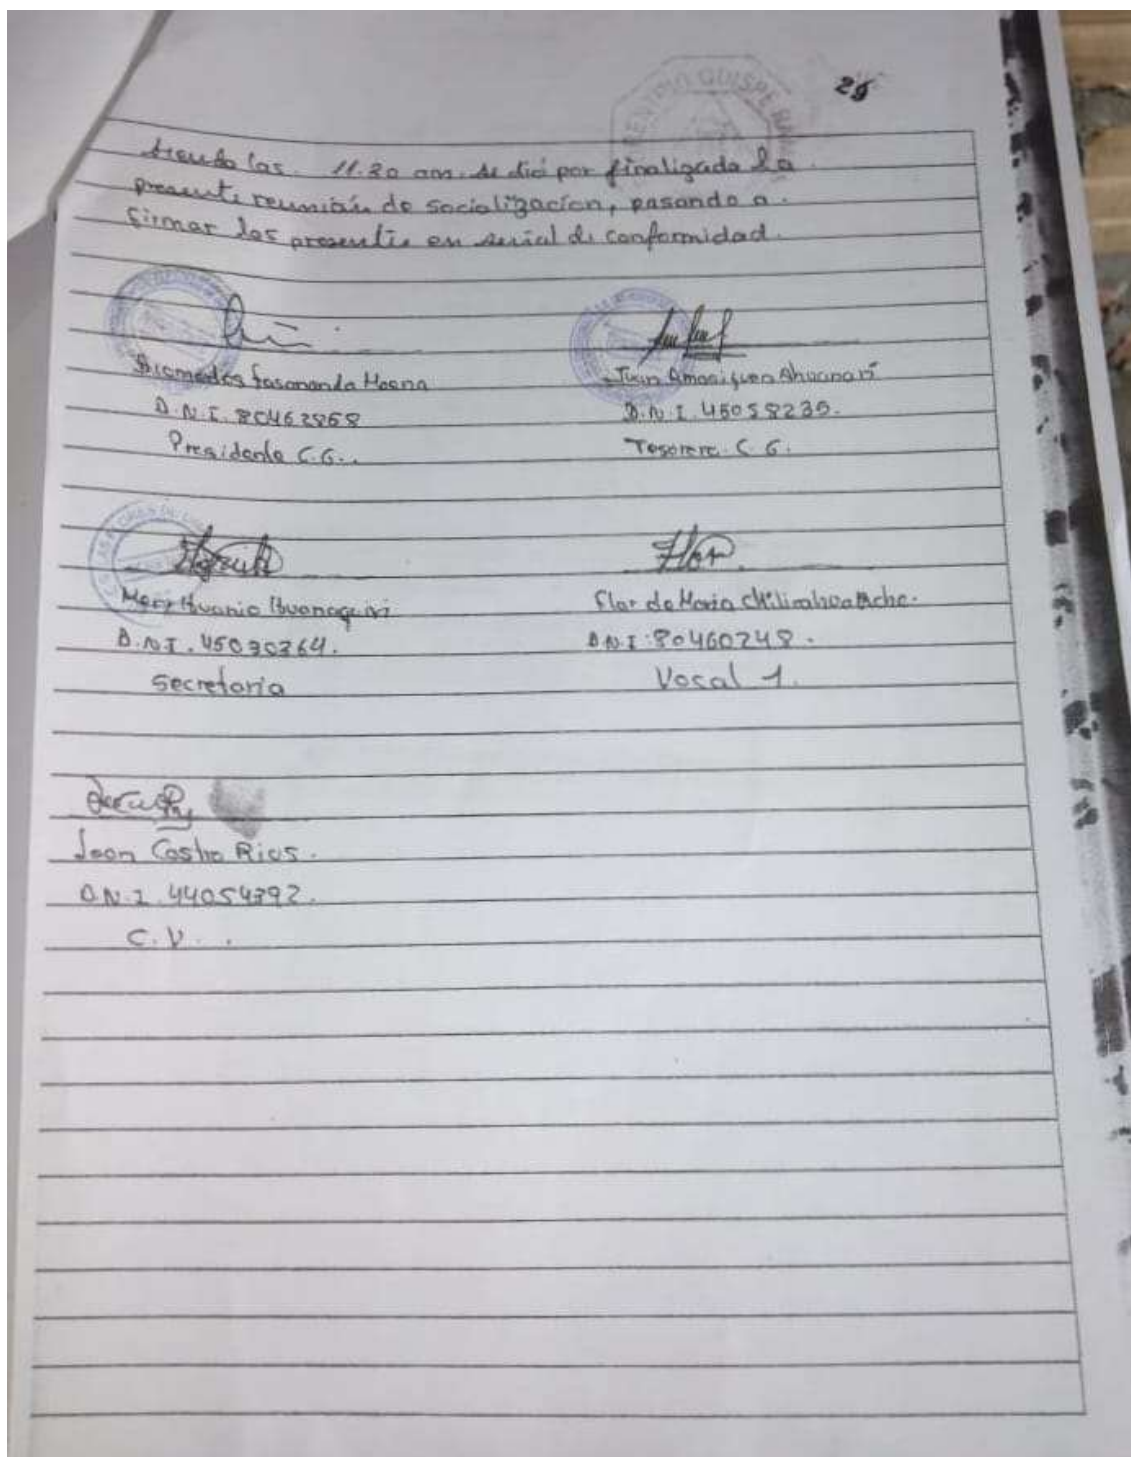 28
siendo las 11.30 am. se dió por finalizada la
presente reunión de socialización, pasando a
firmar los presentes en señal de conformidad.
Diomedes Fasananda
D.N.I. 80462868
Presidente C.G..
Juan Ahuanari
D.N.I. 45058235.
Tesorero. C.G.
Mery Huanio Huanaquiri
D.N.I. 45030364.
Secretaria
Flor
Flor de Maria
D.N.I: 80460248.
Vocal 1.
Castro Rios.
D.N.I. 44054392.
C.V..
QUISPE